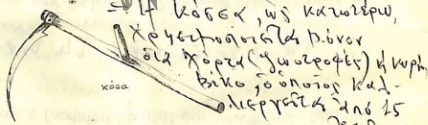 Ἡ κόσσα, ὡς κατωτέρω,
χρησιμοποιεῖται μόνον
διά χόρτα (ζωοτροφές) ἤ κυρίως
κόσα
βίκο, ὁ ὁποῖος καλ-
λιεργεῖται ἀπό 15